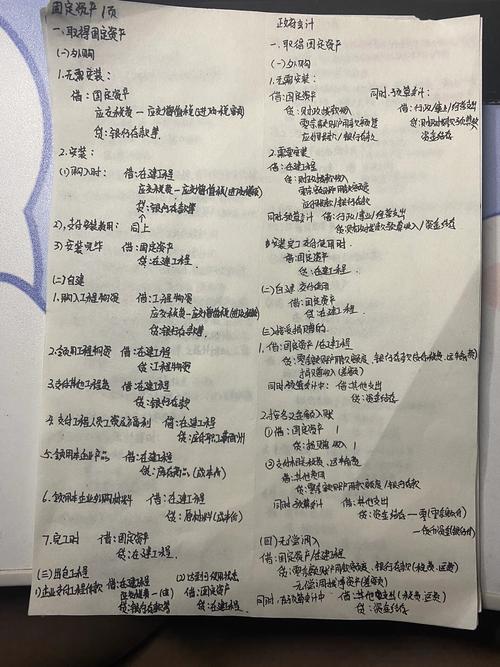 固定资产 1页
一、取得固定资产
(一)外购
1.无需安装:
借:固定资产
应交税费—应交增值税(进项税额)
贷:银行存款等
2.安装:
(1)购入时: 借:在建工程
应交税费—应交增值税(进项税额)
贷:银行存款等
2),支付安装费用: 同上
3)安装完毕 借:固定资产
贷:在建工程
(二)自建
1.购入工程物资 借:工程物资
应交税费—应交增值税(进项税额)
贷:银行存款等
2.领用工程物资 借:在建工程
贷:工程物资
3.支付其他工程费 借:在建工程
贷:银行存款
4.支付工程人员工资及福利 借:在建工程
贷:应付职工薪酬
5.领用本企业产品 借:在建工程
贷:库存商品(成本价)
6.领用本企业外购材料 借:在建工程
贷:原材料(成本价)
7.完工时 借:固定资产
贷:在建工程
(三)出包工程
1)企业支付工程价款 借:在建工程
应交税费—(进)
贷:银行存款等
(2)达到可使用状态
借:固定资产
贷:在建工程
政府会计
一、取得固定资产
(一)外购
1.无需安装:
借:固定资产
贷:财政拨款收入
零余额账户用款额度
应付账款/银行存款
同时,预算会计:
借:行政/事业/经营支出
贷:财政拨款预算收入
资金结存
2.需要安装
借:在建工程
贷:财政拨款收入
零余额账户用款额度
应付账款/银行存款
同时预算会计 借:行政/事业/经营支出
贷:财政拨款预算收入/资金结存
安装完工交付使用时.
借:固定资产
贷:在建工程
(二)自建 交付使用
借:固定资产
贷:在建工程
(三)接受捐赠的.
1.借:固定资产/在建工程
贷:零余额账户用款额度、银行存款
捐赠收入(差额)
同时,预算会计中: 借:其他支出
贷:资金结存
2.按名义金额入账
①借:固定资产 1
贷:捐赠收入 1
②支付相关税费、运输费
借:其他费用
贷:零余额账户用款额度/银行存款
同时 预算会计 借:其他支出
贷:资金结存
(四)无偿调入
借:固定资产/在建工程
贷:零余额账户用款额度、银行存款(税费、运费)
无偿调拨净资产(差额)
同时,在预算会计中 借:其他支出(税费、运费)
贷:资金结存